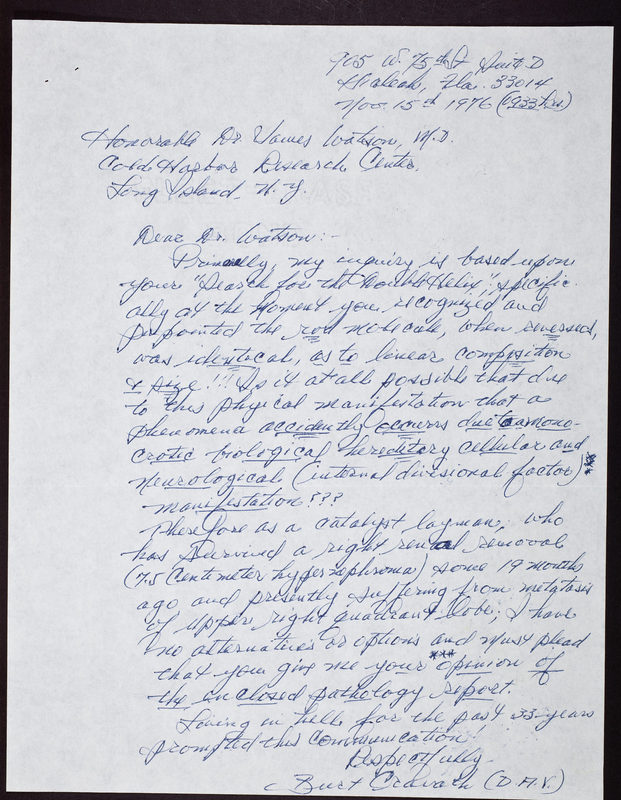 905 W. 75th St Suite D
Hialeah, Fla. 33014
Nov. 15th 1976 (1933 hrs.)
Honorable Dr. James Watson, M.D.
Cold Harbor Research Center.
Long Island, N.Y.
Dear Dr. Watson:-
my inquiry is based upon
your "Search for the Double Helix", specific-
ally at the moment you recognized and
the molecule, when reversed,
was identical, as to linear composition
& size.!!! Is it at all possible that due
to this physical manifestation that a
phenomena accidently occurrs due to a mono-
crotic biological hereditory cellular and
neurological (internal divisional factor) ***
manifestation???
Therefore as a catalyst layman, who
has survived a right renal removal
(7.5 Centimeter hypernephroma) some 19 months
ago and presently suffering from metatasis
of upper right quadrant lobe; I have
no alternatives or options and must plead
that you give me your *** opinion of
the enclosed pathology report.
Living in hell for the past 33-years
prompted this communication!
Respectfully
Burt (D.A.V.)